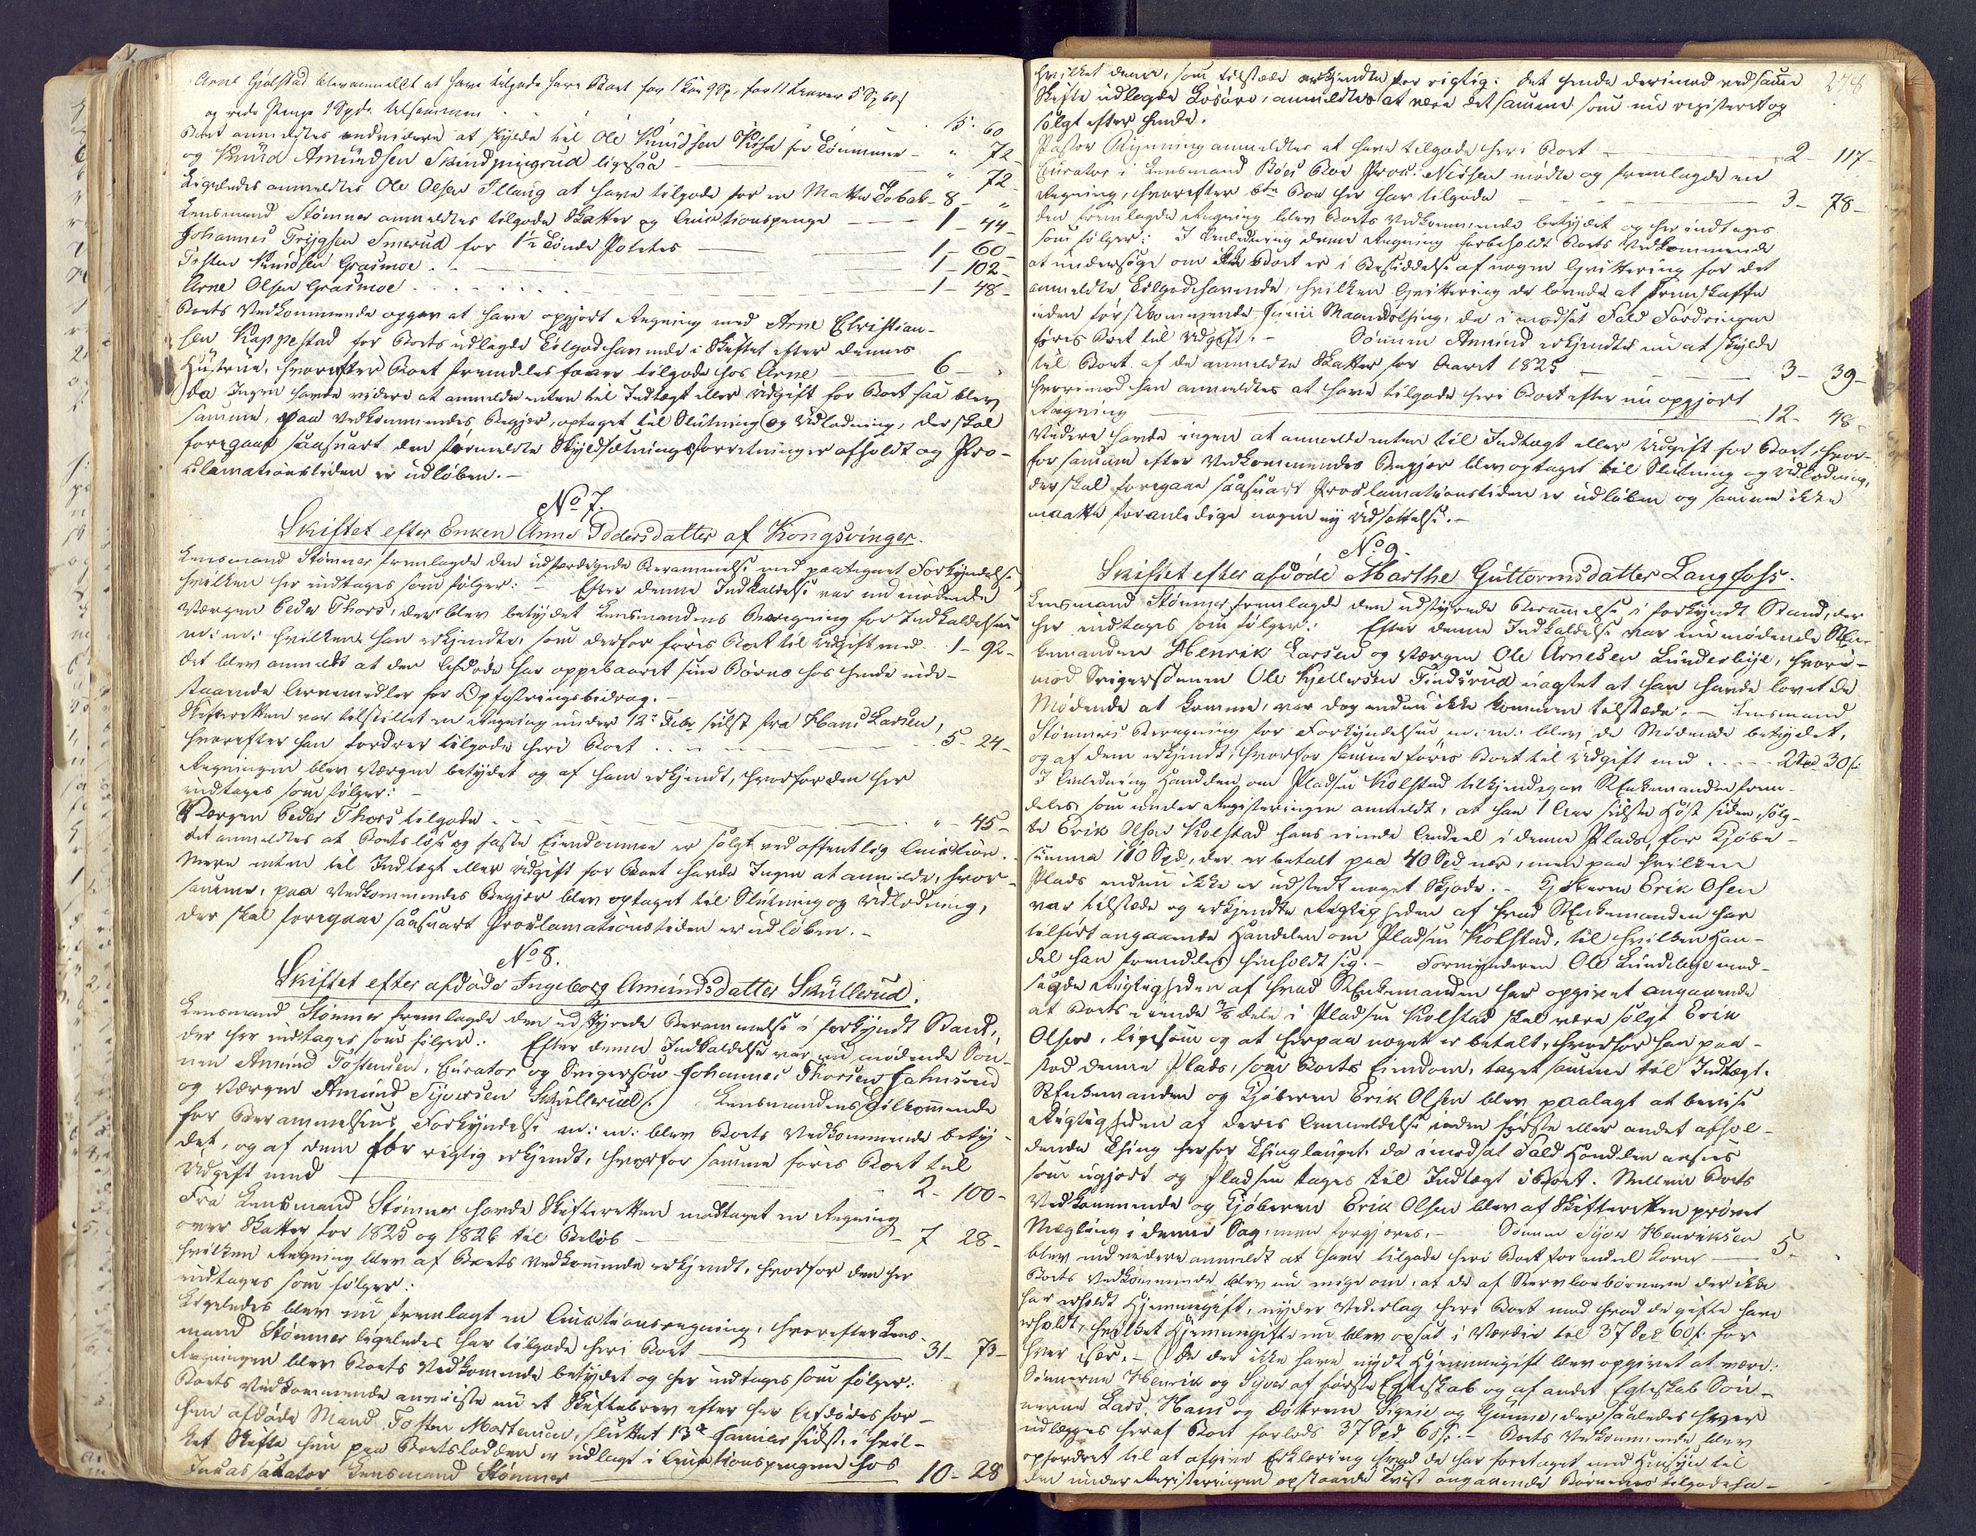 Arne Gjølstad blev anmeldt at have tilgode heri Boet for 1 Koe 9 Sp, for 11 Løvser 5 Sp 60 s
og rede Penge 1 Spd. tilsammen 15. 60
Boet anmeldtes endvidere at skylde til Ole Knudsen for Tømmer " 72
og Knud Amundsen ligesaa " 72
Ligeledes anmeldtes Ole Olsen at have tilgode for en Tobak 8 "
Lensmand Stømner anmeldtes tilgode Skatter og Auctionspenge 1 - 44
Johannes Trÿgsen Smerud for 1½ Tønde Potetes 1 - 60
Tosten Knudsen Grasmoe 1 - 102
Arne Olsen Grasmoe 1 - 48
Boets Vedkommende opgav at have opgjort Regning med Arne Christian-
sen Kappestad for Boets udlagde Tilgodehavende i Skiftet efter dennes
Hustrue, hvorefter Boet fremdeles haver tilgode hos Arne 6 -
Da Ingen havde videre at anmelde enten til Indtægt eller Udgift for Boet saa blev
samme, paa Vedkommendes Begjær, optaget til Slutning og Udlodning, der skal
foregaae saasnart den formeldte Skyldsætningsforretning er afholdt og Pro-
clamationstiden er udløben. -
No 7.
Skiftet efter Enken Anne Pedersdatter af Kongsvinger.
Lensmand Stømner fremlagde den udfærdigede Berammelse med paategnet Forkyndelse
hvilken her indtages som følger: - Efter denne Indkaldelse var nu mødende
Værgen Peder Thors, der blev betydet Lensmandens Beregning for Indkaldelsen
m: m: hvilken han erkjendte, som derfor føres Boet til Udgift med 1 - 92 -
Det blev anmeldt at den Afdøde har oppebaaret sine Børns hos hende inde-
staaende Arvemidler for Opfostringsbidrag. -
Skifteretten var tilstillet en Regning under 12te Febr sidst fra Hans Larsen,
hvorefter han fordrer tilgode heri Boet 5 - 24 -
Regningen blev Værgen betydet og af ham erkjendt, hvorfor den her
indtages som følger: -
Værgen Peder Thors tilgode " - 45 -
Det anmeldtes at Boets løse og faste Eiendomme er solgt ved offentlig Auction.
Mere enten til Indtægt eller Udgift for Boet havde Ingen at anmelde, hvor-
samme, paa Vedkommendes Begjær blev optaget til Slutning og Udlodning,
der skal foregaae saasnart Proclamationstiden er udløben. -
No 8.
Skiftet efter afdøde Ingeborg Amundsdatter Skullerud.
Lensmand Stømner fremlagde den udstyrede Berammelse i forkyndt Stand,
der her indtages som følger: Efter denne Indkaldelse var nu mødende Søn-
nen Amund Tostensen, Curator og Svigersøn Johannes Thorsen
og Værgen Amund Syversen Skullerud. Lensmandens Tilkommende
for Berammelsens Forkyndelse m: m: blev Boets Vedkommende bety-
det, og af dem for rigtig erkjendt, hvorfor samme føres Boet til
Udgift med 2 - 100 -
Fra Lensmand Stømner havde Skifteretten modtaget en Regning
over Skatter for 1825 og 1826 til Beløb 7 28 -
hvilken Regning blev af Boets Vedkommende erkjendt, hvorfor den her
indtages som følger:
Ligeledes blev nu fremlagt en Auctionsregning, hvorefter Lens-
mand Stømner ligeledes har tilgode heri Boet 31 - 73 -
Regningen blev Boets Vedkommende betydet og her indtages som følger:
Boets Vedkommende anviiste nu et Skiftebrev efter her Afdødes for-
hen afdøde Mand Tosten Mortensen, sluttet 13de Januar sidst, i hvil-
ket Skifte hun paa Boetslodden er udlagt i Auctionspengene hos
Incassator Lensmand Stømner 10 - 28
278
hvilket denne, som tilstæde erkjendte for rigtig. Det hende derimod ved samme
Skifte udlagde Løsøre, anmeldtes at være det samme som nu registeret og
solgt efter hende.
Pastor Rynning anmeldtes at have tilgode heri Boet 2 - 117 -
Curator i Lensmand Boes Boe Proc. Nissen mødte og fremlagde en
Regning, hvorefter Boe her har tilgode 3 - 78 -
Den fremlagde Regning blev Boets Vedkommende betydet og her indtages
som følger: I Anledning denne Regning forbeholdt Boets Vedkommende
at undersøge om Boet er i Besiddelse af nogen Qvittering for det
anmeldte Tilgodehavende, hvilken Qvittering de lovede at fremskaffe
inden førstkommende Junii Maanedsthing, da i modsat Fald Fordringen
føres Boet til Udgift. - Sønnen Amund erkjendte nu at skylde
til Boet af de anmeldte Skatter for Aaret 1825 3 - 39 -
hvorimod han anmeldtes at have tilgode heri Boet efter nu opgjort
Regning 12 - 48 -
Videre havde ingen at anmelde enten til Indtægt eller Udgift for Boet, hvor-
for samme efter Vedkommendes Begjær blev optaget til Slutning og Udlodning,
der skal foregaae saasnart Proclamationstiden er udløben og samme ikke
maatte foranledige nogen ny Udsættelse. -
No 9.
Skiftet efter afdøde Marthe Guttormsdatter Langfoss.
Lensmand Stømner fremlagde den udstyrede Berammelse i forkyndt Stand, der
her indtages som følger: Efter denne Indkaldelse var nu mødende En-
kemanden Henrik Larsen og Værgen Ole Arnesen Lundebye, hvori-
mod Svigersønnen Ole Kjelsen Findsrud uagtet at han havde lovet de
Mødende at komme, var dog endnu ikke kommen tilstæde. - Lensmand
Stømners Beregning for Forkyndelsen m: m: blev de Mødende betydet,
og af dem erkjendt, hvorfor samme føres Boet til Udgift med 2 Spd 30 s.
I Anledning Handelen om Pladsen Kolstad tilkjendegav Enkemanden frem-
deles som under Registeringen anmeldt, at han 1 Aar sidste Høst siden solg-
te Erik Olsen Kolstad hans eiende Andeel i denne Plads, for Kjøbe-
summa 110 Spd, der er betalt paa 40 Spd nær, men paa hvilken
Plads endnu ikke er udstedt noget Skjøde. - Kjøberen Erik Olsen
var tilstæde og erkjendte Rigtigheden af hvad Enkemanden har
tilført angaaende Handelen om Pladsen Kolstad, til hvilken Han-
del han fremdeles henholdt sig. - Formynderen Ole Lundebye mod-
sagde Rigtigheden af hvad Enkemanden har opgivet angaaende
at Boets eiende Deele i Pladsen Kolstad skal være solgt Erik
Olsen, ligesom og at herpaa noget er betalt, hvorfor han paa-
stod denne Plads, som Boets Eiendom, taget samme til Indtægt.
Enkemanden og Kjøberen Erik Olsen blev paalagt at bevise
Rigtigheden af deres Anmeldelse inden første eller andet afhol-
dende Thing herfor Thinglauget, da i modsat Fald Handelen ansees
som ugjort og Pladsen tages til Indtægt i Boet. Mellem Boets
Vedkommende og Kjøberen Erik Olsen blev af Skifteretten prøvet
Mægling i denne Sag, men forgjeves. - Sønnen Syver Henriksen
blev endvidere anmeldt at have tilgode heri Boet for en deel Korn 5 -
Boets Vedkommende blev nu enige om, at de af Stervboebørnene der ikke
har erholdt Hjemmegift, nyder Vederlag heri Boet mod hvad de gifte have
erholdt, hvilket Hjemmegifte nu blev opsat i Værdie til 37 Spd 60 s. for
hver især. - De der ikke have nydt Hjemmegift blev opgivet at være:
Sønnerne Henrik og Syver af første Egteskab og af andet Egteskab Søn-
nerne Lars, Hans og Døttrene Signe og Gunne, der saaledes hver
udlægges heraf Boet forlods 37 Spd 60 s. - Boets Vedkommende blev
opfordret til at afgive Erklæring hvad de har foretaget med Hensyn til
den under Registeringen opstaaede Tvist angaaende Børnenes tilgodeha-